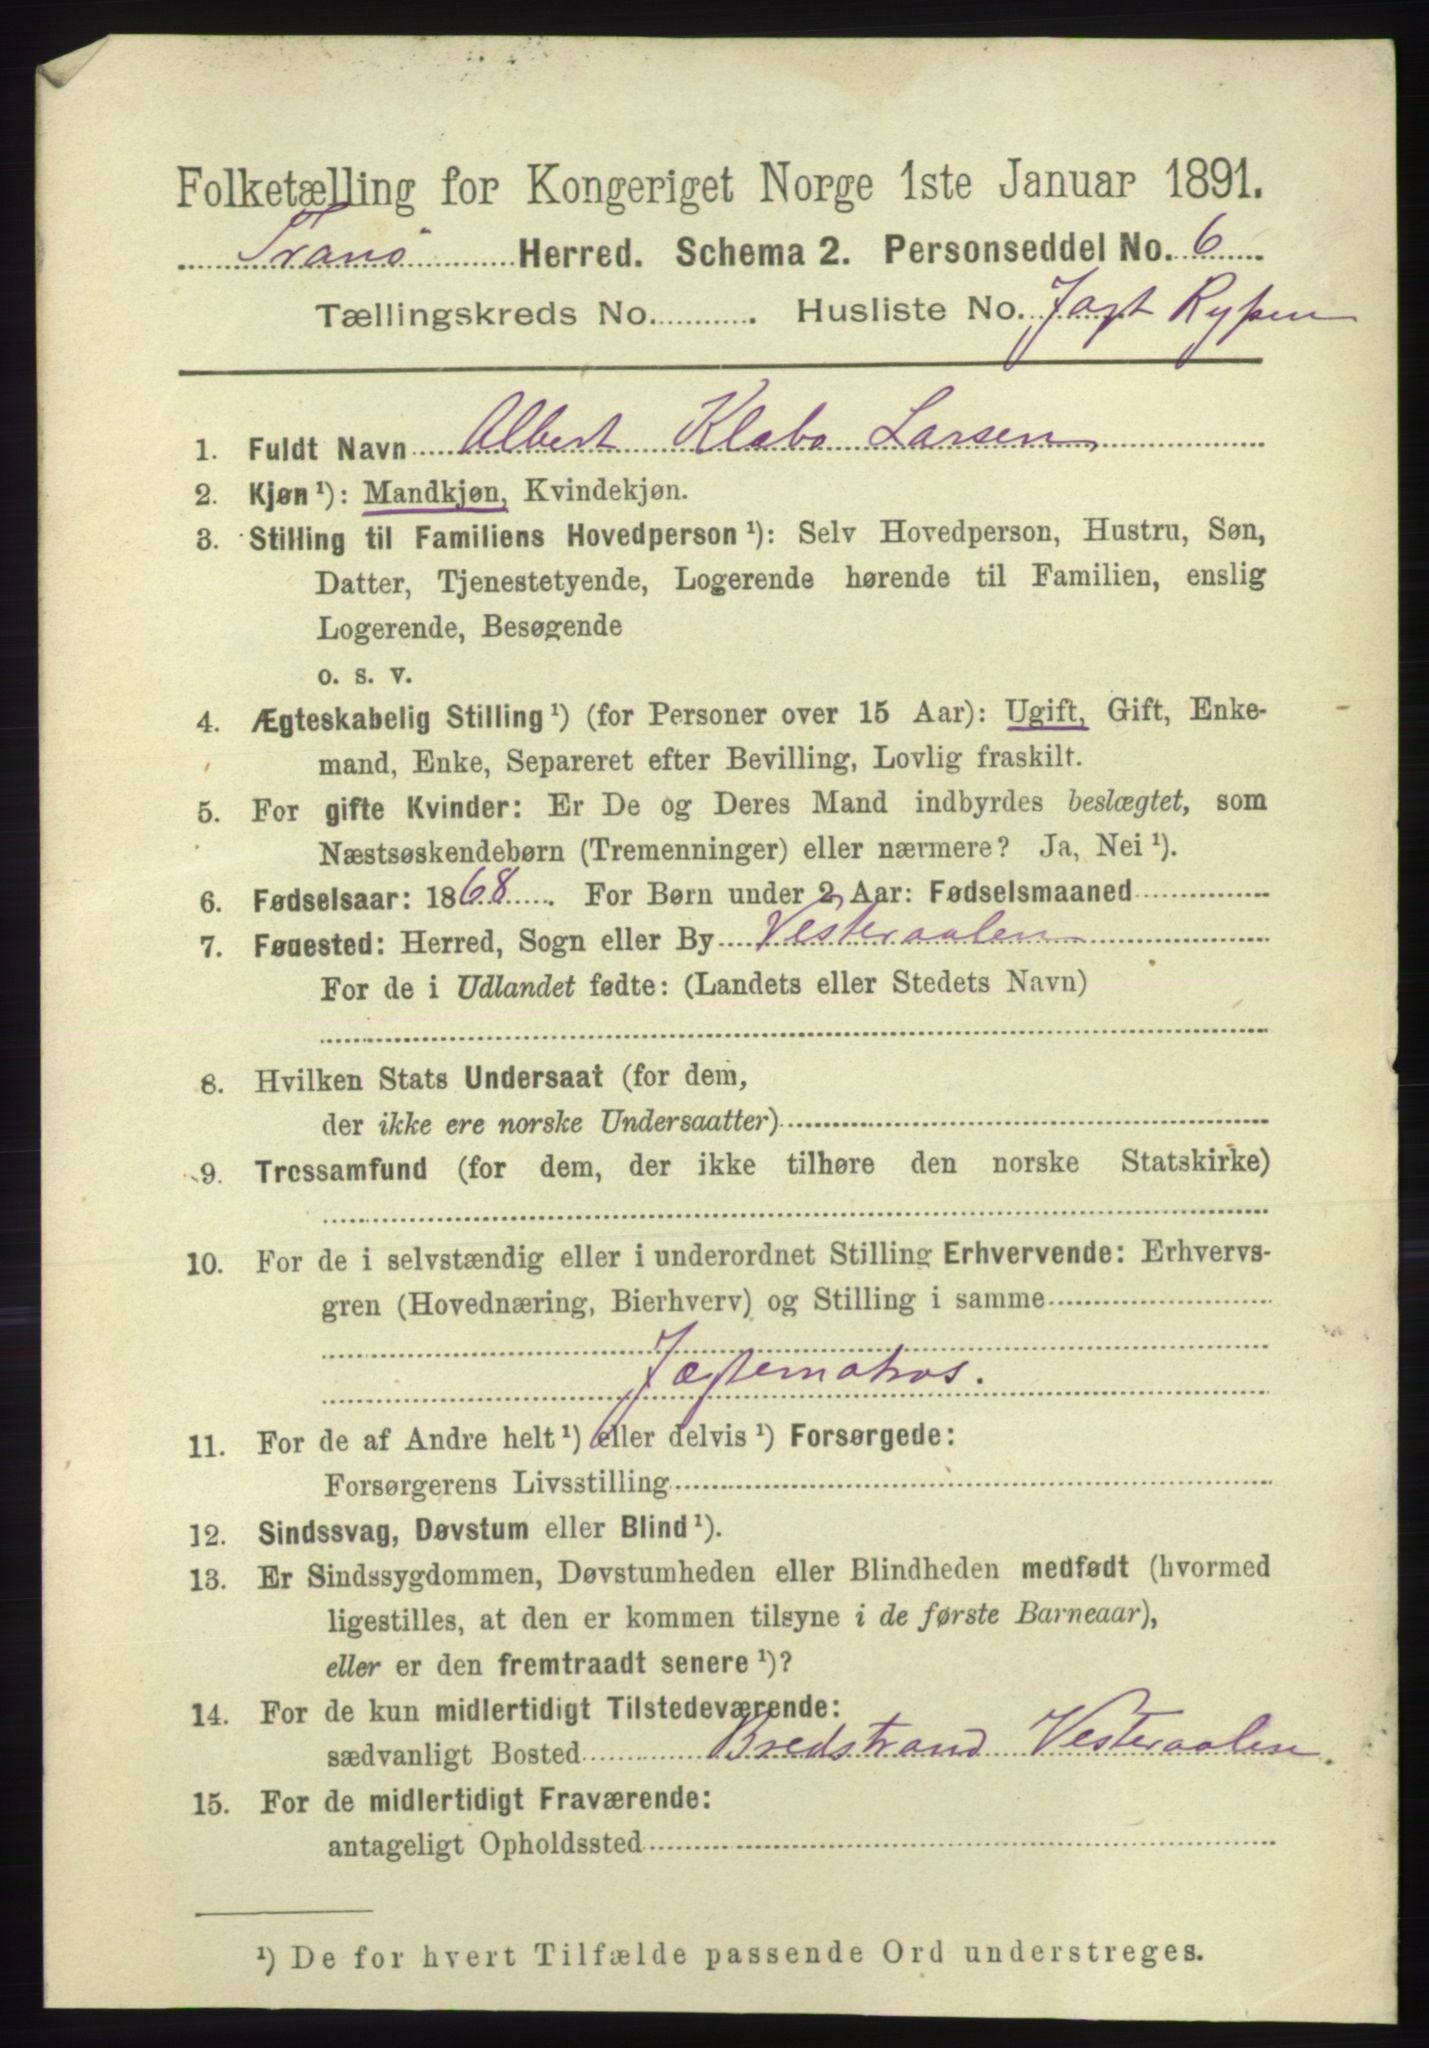 Folketælling for Kongeriget Norge 1ste Januar 1891.
Tranö Herred. Schema 2. Personseddel No. 6
Tællingskreds No. Husliste No. Jagt Rypen
1. Fuldt Navn Albert Klæbo Larsen
2. Kjøn¹): Mandkjøn, Kvindekjøn.
3. Stilling til Familiens Hovedperson¹): Selv Hovedperson, Hustru, Søn,
Datter, Tjenestetyende, Logerende hørende til Familien, enslig
Logerende, Besøgende
o. s. v.
4. Ægteskabelig Stilling¹) (for Personer over 15 Aar): Ugift, Gift, Enke-
mand, Enke, Separeret efter Bevilling, Lovlig fraskilt.
5. For gifte Kvinder: Er De og Deres Mand indbyrdes beslægtet, som
Næstsøskendebørn (Tremenninger) eller nærmere? Ja, Nei¹).
6. Fødselsaar: 1868. For Børn under 2 Aar: Fødselsmaaned
7. Fødested: Herred, Sogn eller By Vesteraalen
For de i Udlandet fødte: (Landets eller Stedets Navn)
8. Hvilken Stats Undersaat (for dem,
der ikke ere norske Undersaatter)
9. Trossamfund (for dem, der ikke tilhøre den norske Statskirke)
10. For de i selvstændig eller i underordnet Stilling Erhvervende: Erhvervs-
gren (Hovednæring, Bierhverv) og Stilling i samme
Jægtematros.
11. For de af Andre helt¹) eller delvis¹) Forsørgede:
Forsørgerens Livsstilling
12. Sindssvag, Døvstum eller Blind¹).
13. Er Sindssygdommen, Døvstumheden eller Blindheden medfødt (hvormed
ligestilles, at den er kommen tilsyne i de første Barneaar),
eller er den fremtraadt senere¹)?
14. For de kun midlertidigt Tilstedeværende:
sædvanligt Bosted Bredstrand Vesteraalen.
15. For de midlertidigt Fraværende:
antageligt Opholdssted
¹) De for hvert Tilfælde passende Ord understreges.